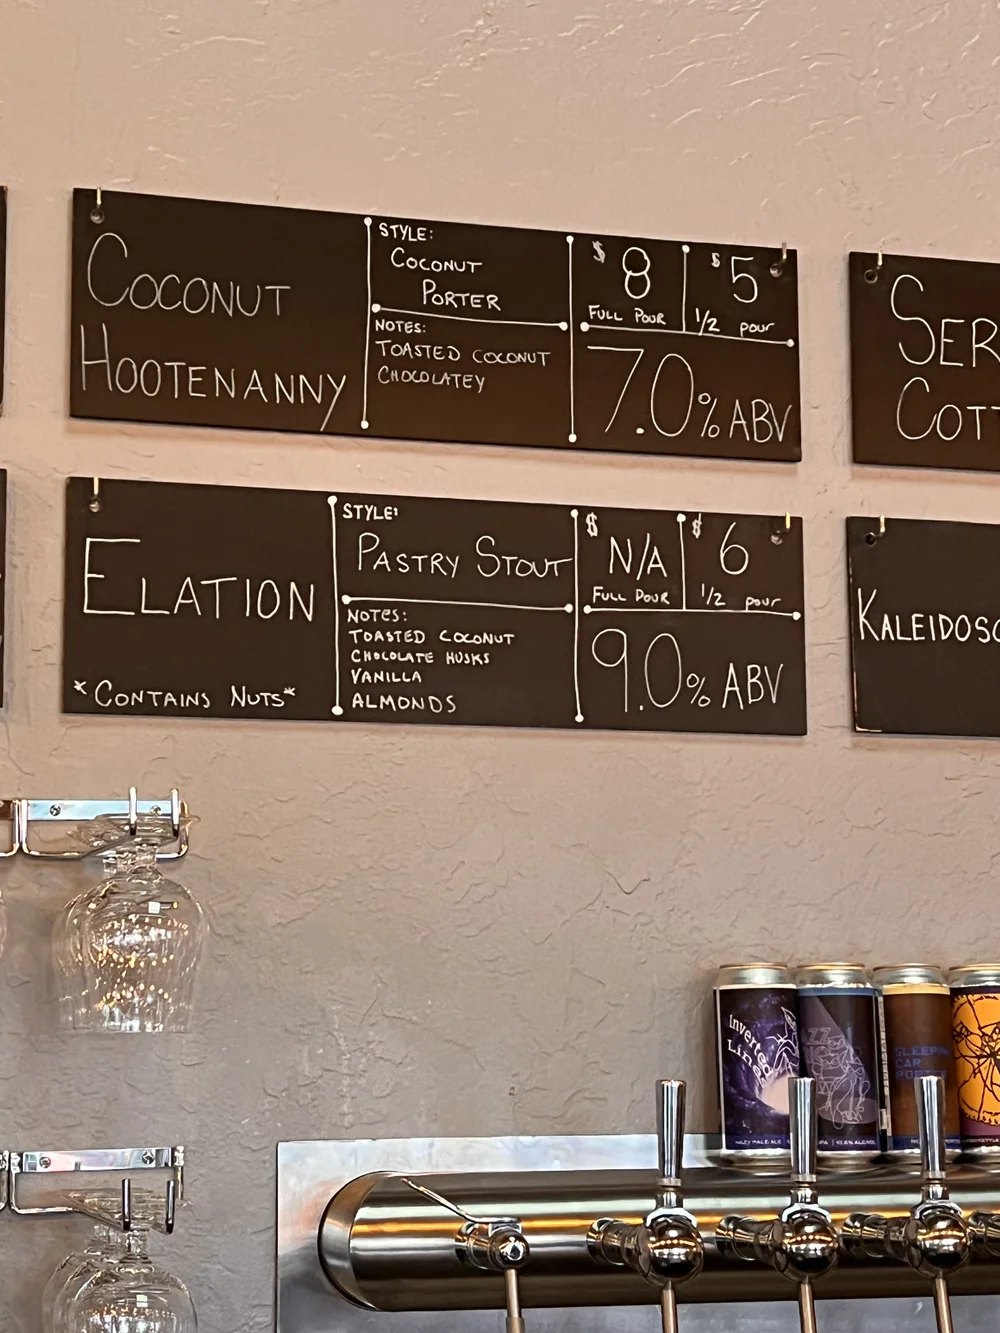 COCONUT
HOOTENANNY
STYLE:
COCONUT
PORTER
NOTES:
TOASTED COCONUT
CHOCOLATEY
$8
FULL POUR
$5
1/2 pour
7.0% ABV
SER
COT
ELATION
*CONTAINS NUTS*
STYLE:
PASTRY STOUT
NOTES:
TOASTED COCONUT
CHOCOLATE HUSKS
VANILLA
ALMONDS
$N/A
FULL POUR
$6
1/2 pour
9.0% ABV
KALEIDOSC
Inverted
Line
HAZY PALE ALE
ZZ
IPA | 10.6% ALCOHOL
SLEEPING
CAR
PORTER